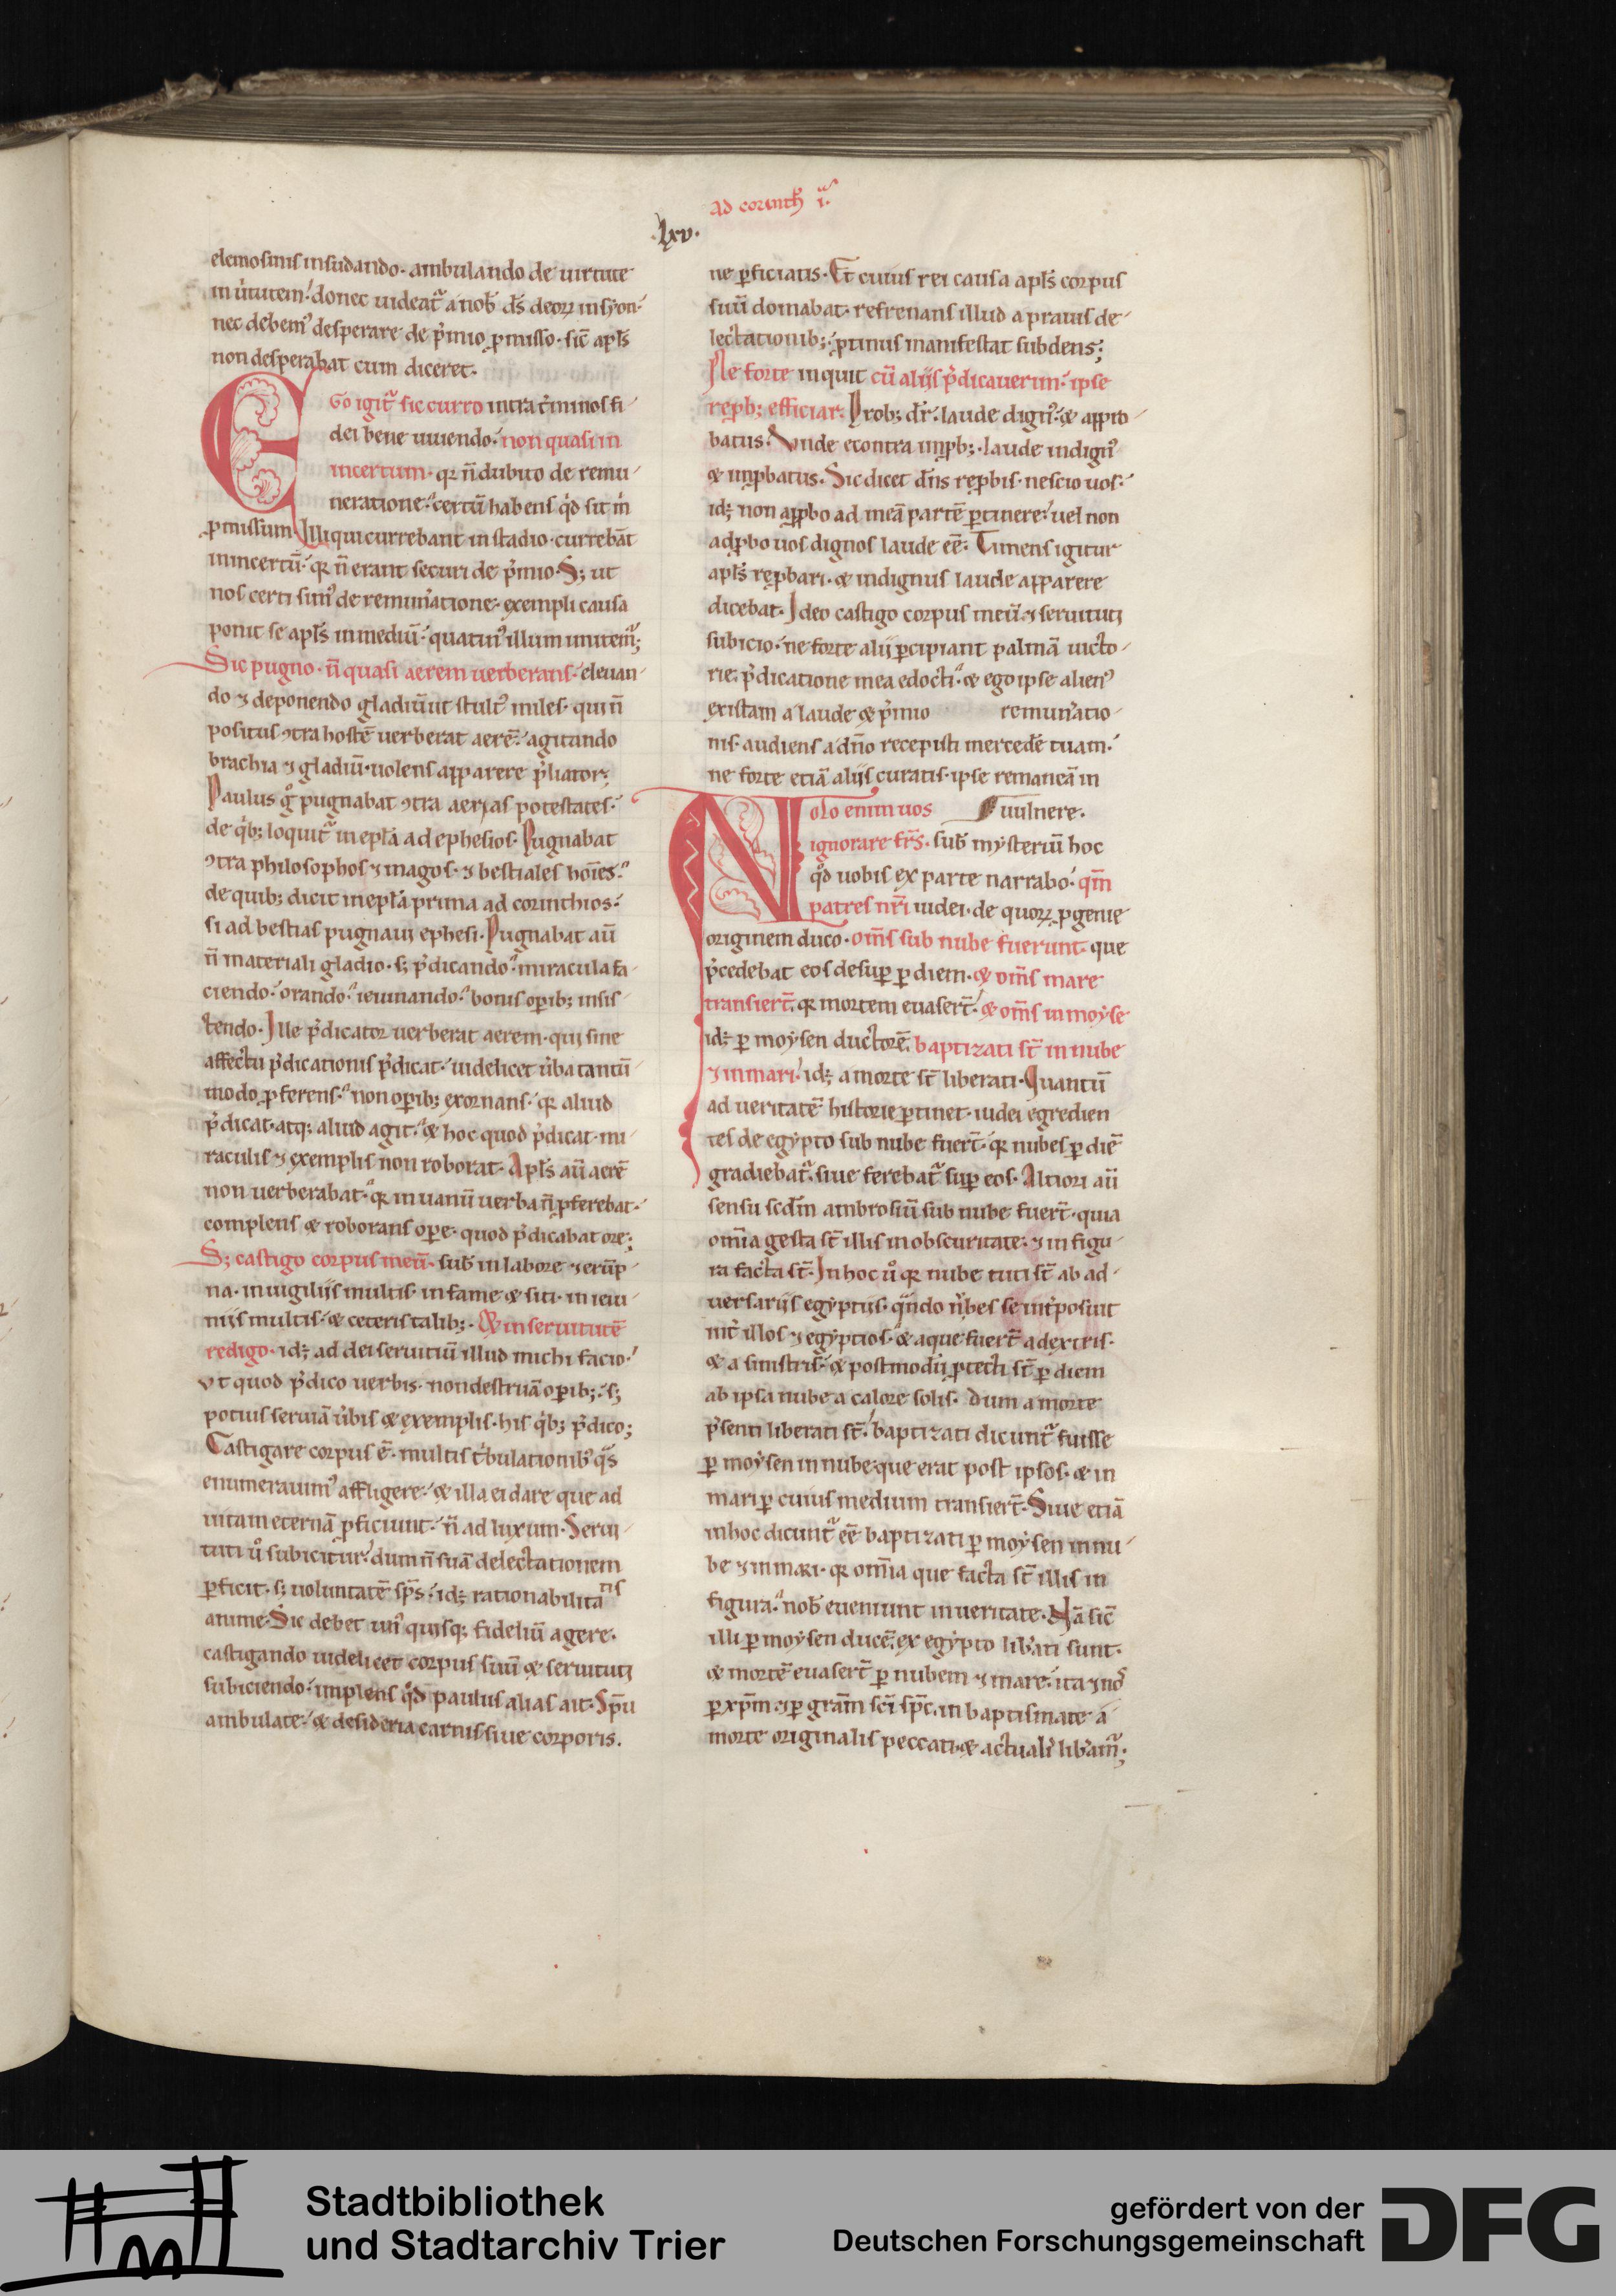 ad corinth̄ .i.ᵃ
.lxv.
elemosinis insudando· ambulando de uirtute
in u̓tutem· donec uideat᷑ a nob̄ ds̄ deoꝝ in syon·
nec debem᷒ desperare de p̓mio ꝓmisso· sic̄ apl̄s
non desperabat cum diceret.
EGo igit᷑ sic curro intra t̓minos fi-
dei bene uiuendo· non quasi in
incertum· qꝛ n̄ dubito de remu-
neratione· certū habens qͥd sit m̓
ꝓmissum Illi qui currebant in stadio· currebāt
in incertū· qꝛ n̄ erant securi de p̓mio. S; ut
nos certi sim᷒ de remun̓atione· exempli causa
ponit se apl̄s in mediū· quatin᷒ illum imitem᷑;
Sic pugno· n̄ quasi aerem uerberans· eleuan-
do ⁊ deponendo gladiū ut stult᷒ miles· qui n̄
positus ꝯtra hostē uerberat aerē· agitando
brachia ⁊ gladiū· uolens apparere p̓liator;
Paulus gͦ pugnabat ꝯtra aerias potestates·
de qͥb; loquit᷑ in epl̄a ad ephesios· Pugnabat
ꝯtra philosophos ⁊ magos· ⁊ bestiales hoīes·
de quib; dicit in epl̄a prima ad corinthios·
si ad bestias pugnaui ephesi· Pugnabat aū
n̄ materiali gladio· s; p̓dicando· miracula fa-
ciendo· orando· ieiunando· bonis oꝑib; insis-
tendo· Ille p̓dicator uerberat aerem· qui sine
affectu p̓dicationis p̓dicat· uidelicet u̓ba tantū
modo ꝓferens· non oꝑib; exornans· qꝛ aliud
p̓dicat· atq; aliud agit· & hoc quod p̓dicat· mi-
raculis ⁊ exemplis non roborat· Apl̄s aū aerē
non uerberabat· qꝛ in uanū uerba n̄ ꝓferebat·
complens & roborans oꝑe· quod p̓dicabat ore;
S; castigo corpus meū· sub̄ in labore ⁊ erūp-
na· in uigiliis multis· in fame & siti· in ieiu-
niis multis· & ceteris talib;· Et in seruitutē
redigo· id; ad dei seruitiū illud michi facio·
Vt quod p̓dico uerbis· non destruā oꝑib;· s;
potius seruiā u̓bis & exemplis· his qͥb; p̓dico;
Castigare corpus ē· multis t̓bulationib᷒ qᷓs
enumerauim᷒ affligere· & illa ei dare que ad
uitam eternā ꝓficiunt· n̄ ad luxum· Serui-
tuti uͦ subicitur· dum n̄ suā delectationem
ꝑficit· s; uoluntatē sp̄s· id; rationabilitatis
anime· Sic debet un᷒ quisq; fideliū agere·
castigando uidelicet corpus suū & seruituti
subiciendo· implens qͦd paulus alias ait· Sp̄u
ambulate· & desideria carnis siue corporis.
ne ꝑficiatis· Et cuius rei causa apl̄s corpus
suū domabat· refrenans illud a prauis de-
lectationib;· ꝓtinus manifestat subdens;
Ne forte inquit cū aliis p̓dicauerim· ipse
reꝓb; efficiar· Prob; dr̄· laude dign᷒ & appro-
batus· Vnde econtra imꝓb;· laude indign᷒
& imꝓbatus· Sic dicet dn̄s reꝓbis· nescio uos·
id; non apꝓbo ad meā partē ꝑtinere· uel non
adꝓbo uos dignos laude eē· Timens igitur
apl̄s reꝓbari· & indignus laude apparere
dicebat· Ideo castigo corpus meū ⁊ seruituti
subicio· ne forte alii ꝑcipiant palmā uicto-
rie· p̓dicatione mea edocti· & ego ipse alien᷒
existam a laude & p̓mio remun̓atio-
nis· audiens a dn̄o recepisti mercedē tuam·
ne forte etiā aliis curatis· ipse remaneā in
uulnere.
NOlo enim uos
ignorare fr̄s· sub̄ mysteriū hoc
qͦd uobis ex parte narrabo· qm̄
patres nr̄i iudei· de quoꝝ ꝓgenie
originem duco· om̄s sub nube fuerunt· que
p̓cedebat eos desuꝑ ꝑ diem· & om̄s mare
transierт̄· qꝛ mortem euasert̄· & om̄s in moyse
id; ꝑ moysen ductorē· baptizati st̄ in nube
⁊ in mari· id; a morte st̄ liberati· Quantū
ad ueritatē historie ꝑtinet· iudei egredien
tes de egypto sub nube fuert̄· qꝛ nubes ꝑ diē
gradiebat᷑· siue ferebat᷑ suꝑ eos· Altiori aū
sensu scd̄m ambrosiū sub nube fuert̄· quia
om̄ia gesta st̄ illis in obscuritate· ⁊ in figu-
ra facta st̄· In hoc uͦ qꝛ nube tuti st̄ ab ad-
uersariis egyptiis· qᷓndo nubes se int̓posuit
int̓ illos ⁊ egyptios· & aque fuert̄ a dextris·
& a sinistris· & postmodū ꝓtecti st̄ ꝑ diem
ab ipsa nube a calore solis· dum a morte
p̓senti liberati st̄· baptizati dicunt᷑ fuisse
ꝑ moysen in nube que erat post ipsos· & in
mari ꝑ cuius medium transiert̄· Siue etiā
in hoc dicunt᷑ eē baptizati ꝑ moysen in nu-
be ⁊ in mari· qꝛ om̄ia que facta st̄ illis in
figura· nob̄ eueniunt in ueritate· Nā sic̄
illi ꝑ moysen ducē ex egypto lib̓ati sunt·
& mortē euasert̄ ꝑ nubem ⁊ mare· ita ⁊ nos
ꝑ xp̄m ⁊ ꝑ gr̄am sc̄i sp̄c in baptismate a
morte originalis peccati & actualis lib̓am᷑;
Stadtbibliothek
und Stadtarchiv Trier
gefördert von der
Deutschen Forschungsgemeinschaft
DFG